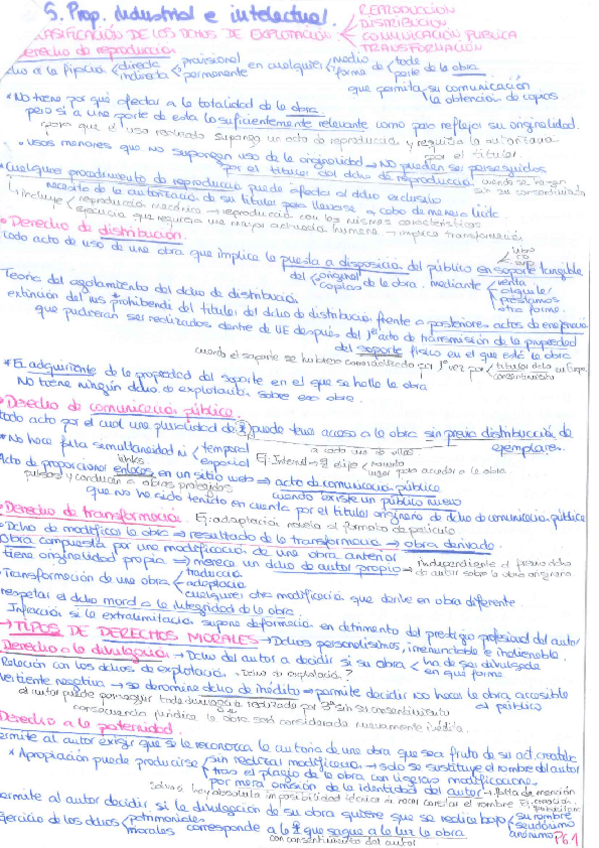 5. Prop. Industrial e intelectual.
CLASIFICACIÓN DE LOS DCHOS DE EXPLOTACIÓN
REPRODUCCIÓN
DISTRIBUCIÓN
COMUNICACIÓN PÚBLICA
TRANSFORMACIÓN
Derecho de reproducción
dcho a la fijación directa indirecta provisional permanente en cualquier medio forma de toda parte de la obra
que permita su comunicación
la obtención de copias.
*No tiene por qué afectar a la totalidad de la obra
pero sí a una parte de esta lo suficientemente relevante como para reflejar su originalidad.
para que el uso realizado suponga un acto de reproducción y requiera la autorizac
por el titular.
usos menores que no supongan uso de la originalidad → NO pueden ser perseguidos
por el titular del dcho de reproducción
*Cualquier procedimiento de reproducción puede afectar al dcho exclusivo
necesita de la autorización de su titular para llevarse a cabo de manera lícita.
incluye reproducción mecánica → reproducción con las mismas características
que requiera una mayor actividad humana → implica transformación
• Derecho de distribución.
todo acto de uso de una obra que implica la puesta a disposición del público en soporte tangible
libro
CD
del original copias de la obra. mediante venta
alquiler
préstamos
otra forma.
Teoría del agotamiento del dcho de distribución
extinción del ius prohibendi del titular del dcho de distribución frente a posteriores actos de enajenación
que pudieran ser realizados dentro de UE después del 1er acto de transmisión de la propiedad
del soporte físico en el que esté la obra
cuando el soporte se hubiere comercializado por 1ª vez por titular dcho en Europa
consentimiento
*El adquirente de la propiedad del soporte en el que se halle la obra
No tiene ningún dcho de explotación sobre esa obra.
Derecho de comunicación pública.
todo acto por el cual una pluralidad de puede tener acceso a la obra sin previa distribución de
ejemplares.
a cada una de ellas
*No hace falta simultaneidad ni temporal
espacial Ej: Internet → elije momento
lugar para acceder a la obra
links
Acto de proporcionar enlaces en un sitio web → acto de comunicación pública
pulsados y conducen a obras protegidas cuando existe un público nuevo
que no ha sido tenido en cuenta por el titular originario de dcho de comunicación pública
Derecho de transformación. Ej: adaptación novela al formato de película
Dcho de modificar la obra → resultado de la transformación → obra derivada.
Obra compuesta por una modificación de una obra anterior
tiene originalidad propia → merece un dcho de autor propio → independiente al previo dcho
de autor sobre la obra originaria
Transformación de una obra traducción
adaptación
cualquier otra modificación que derive en obra diferente.
respetar el dcho moral a la integridad de la obra
Infracción si la extralimitación supone deformación en detrimento del prestigio profesional del autor
→ TIPOS DE DERECHOS MORALES → Dchos personalísimos, irrenunciable e inalienable.
Derecho a la divulgación → Dcho del autor a decidir si su obra ha de ser divulgada
en qué forma.
Relación con los dchos de explotación. Dcho de explotació?
Vertiente negativa → se denomina dcho de inédito → permite decidir no hacer la obra accesible
al público
el autor puede perseguir toda divulgación realizada por 3º sin su consentimiento
consecuencia jurídica la obra será considerada nuevamente inédita.
Derecho a la paternidad.
permite al autor exigir que se le reconozca la autoría de una obra que sea fruto de su act. creativa
*Apropiación puede producirse sin realizar modificación → solo se sustituye el nombre del autor
tras el plagio de la obra con ligeras modificaciones
por mera omisión de la identidad del autor → falta de mención
salvo si hay absoluta imposibilidad técnica de hacer constar el nombre Ej: creación
publicitaria
permite al autor decidir si la divulgación de su obra quiere que se realice bajo su nombre
seudónimo
anónimo
Ejercicio de los dchos patrimoniales
morales corresponde a la que saque a la luz la obra
con consentimiento del autor
PG 1